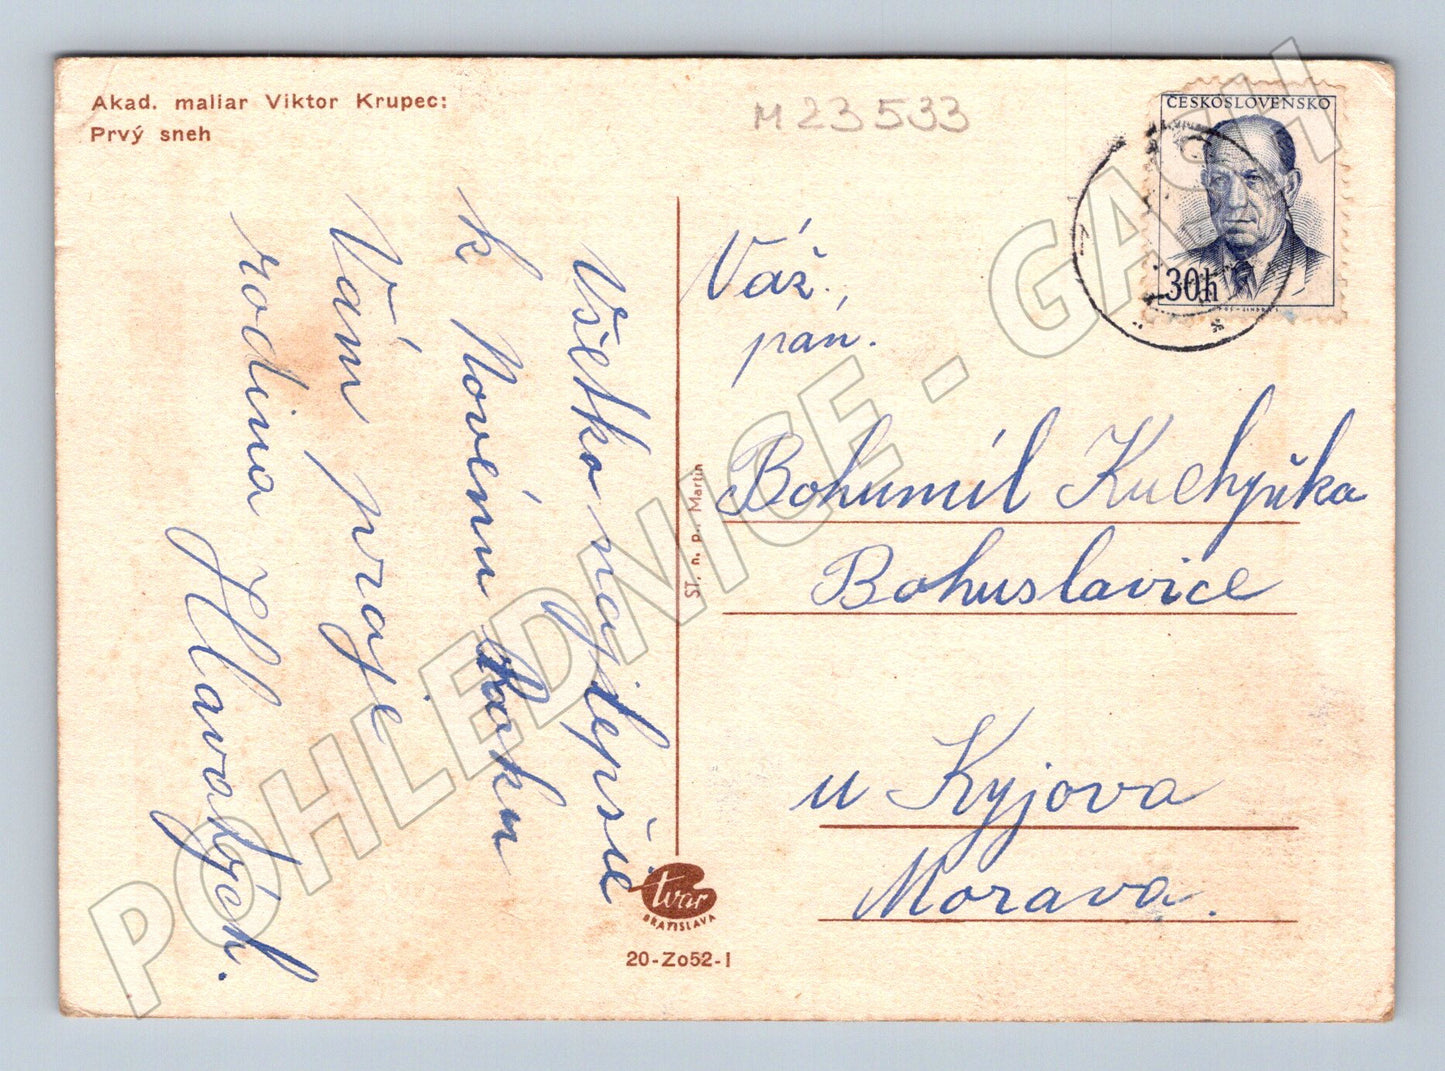 Akad. maliar Viktor Krupec:
Prvý sneh
M 23533
ČESKOSLOVENSKO
30h
Všetko najlepšie
k Novému Roku
Vám praje
rodina Hlavatých.
Váž.,
pán.
Bohumíl Kuchyňka
Bohuslavice
u Kyjova
Morava.
ST. n. p., Martin
tvar
BRATISLAVA
20-Zo52-I
POHLEDNICE - GASH